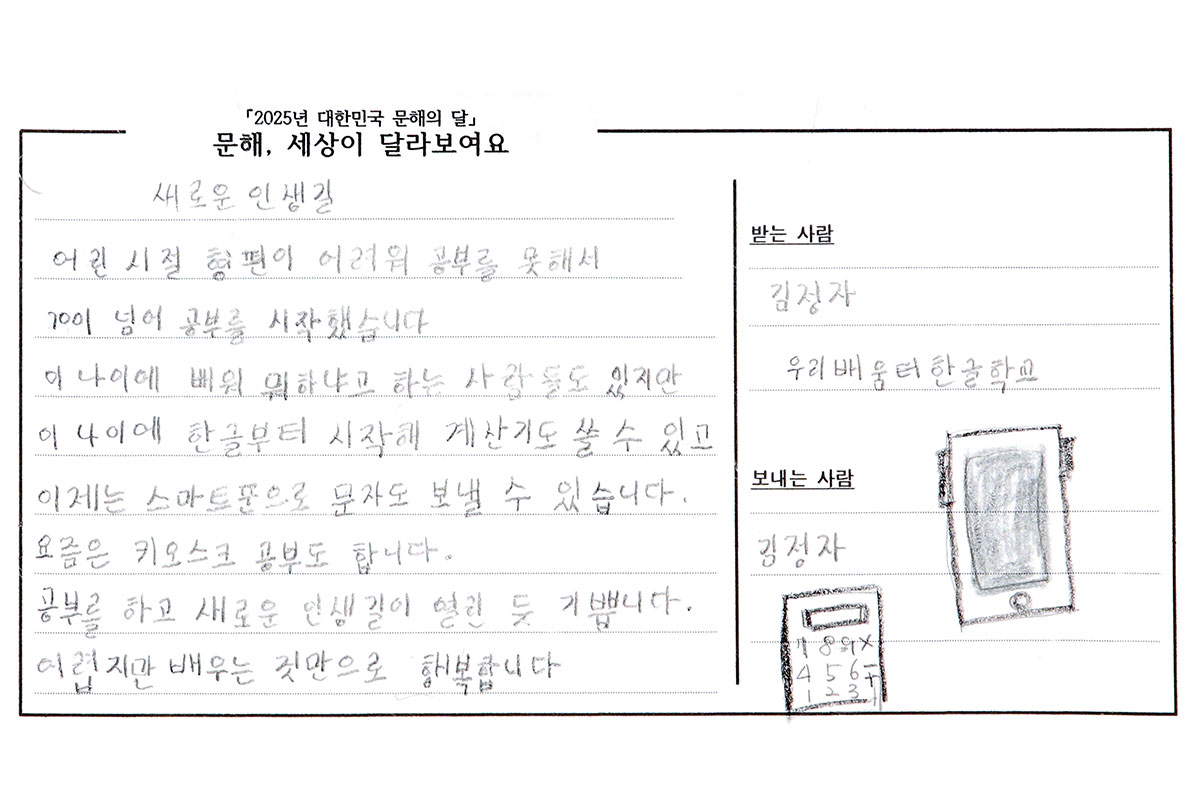 「2025년 대한민국 문해의 달」
문해, 세상이 달라보여요
새로운 인생길
어린 시절 형편이 어려워 공부를 못해서
70이 넘어 공부를 시작했습니다
이 나이에 배워 뭐하냐고 하는 사람들도 있지만
이 나이에 한글부터 시작해 계산기도 쓸 수 있고
이제는 스마트폰으로 문자도 보낼 수 있습니다.
요즘은 키오스크 공부도 합니다.
공부를 하고 새로운 인생길이 열린 듯 기쁩니다.
어렵지만 배우는 것만으로 행복합니다
받는 사람
김정자
우리배움터한글학교
보내는 사람
김정자
7 8 9 ×
4 5 6 -
1 2 3 +